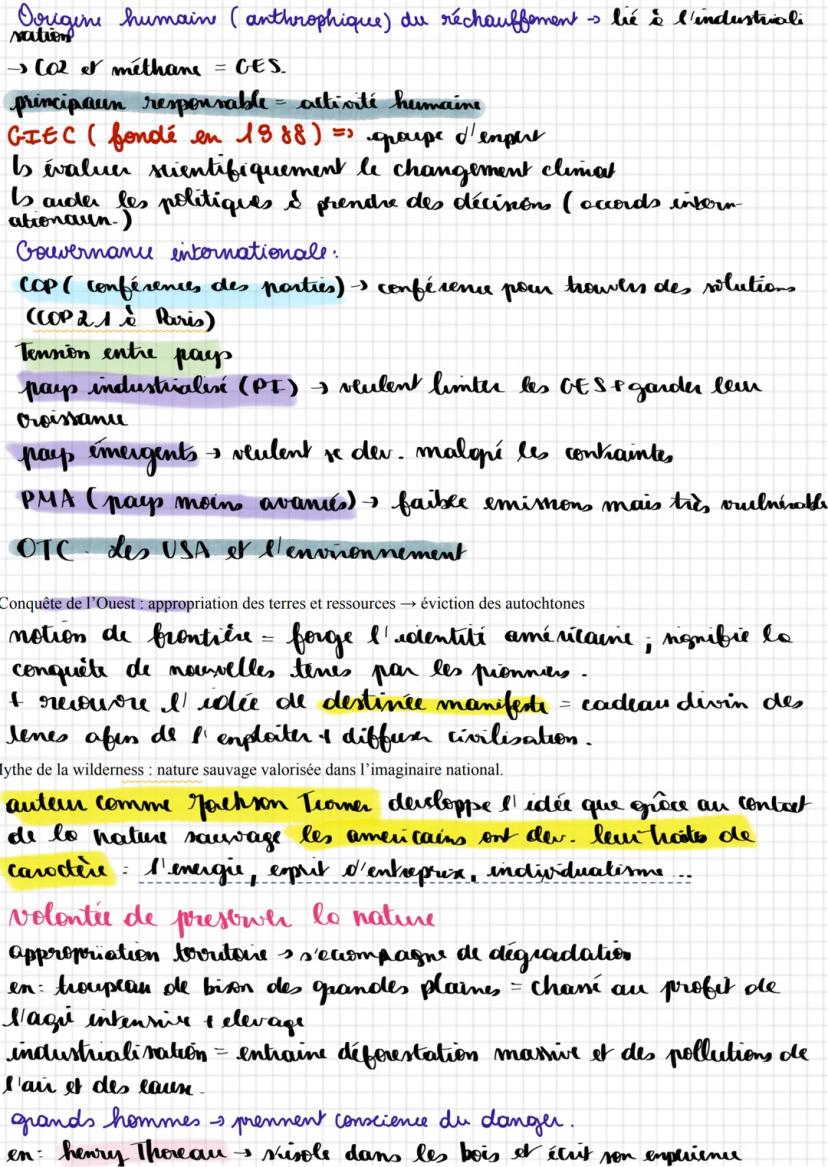 Oorigine humaine (anthrophique) du réchauffement → lié à l'industriali
sation
→ CO2 et méthane = GES.
principaux responsable = activité humaine
GIEC (fondé en 1988) => groupe d'expert
↳ évaluer scientifiquement le changement climat
↳ aider les politiques à prendre des décisions (accords intern-
ationaux.)
Gouvernance internationale :
COP (conférences des parties) → conférence pour trouvers des solutions
(COP21 à Paris)
Tension entre pays
pays industrialisé (PI) → veulent limiter les GES + garder leur
croissance
pays émergents → veulent se dev. malgré les contraintes
PMA (pays moins avancés) → faible emissions mais très vulnérable
OTC. Les USA et l'environnement
Conquête de l'Ouest : appropriation des terres et ressources → éviction des autochtones
notion de frontière = forge l'identité américaine ; signifie la
conquête de nouvelles terres par les pionniers.
+ recouvre l'idée de destinée manifeste = cadeau divin des
terres afin de l'exploiter + diffuser civilisation.
lythe de la wilderness : nature sauvage valorisée dans l'imaginaire national.
auteur comme Jackson Turner developpe l'idée que grâce au contact
de la nature sauvage les americains ont dev. leur traits de
caractère : l'energie, esprit d'entreprise, individualisme ...
volontée de preserver la nature
appropriation territoire → s'accompagne de dégradation
ex: troupeau de bison des grandes plaines = chassé au profit de
l'agri intensive + elevage
industrialisation = entraine déforestation massive et des pollutions de
l'air et des eaux.
grands hommes → prennent conscience du danger.
ex: henry Thoreau → s'isole dans les bois et écrit son experience